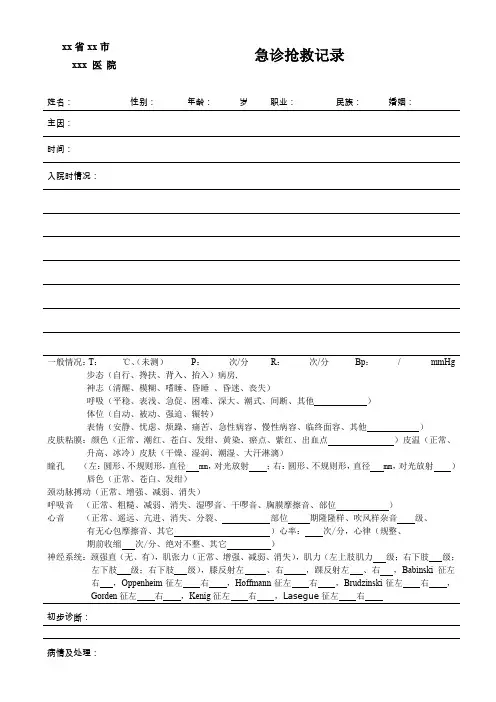 xx省xx市
xxx 医 院
急诊抢救记录
姓名： 性别： 年龄： 岁 职业： 民族： 婚姻：
主因：
时间：
入院时情况：
一般情况：T： ℃、（未测） P： 次/分 R： 次/分 Bp： / mmHg
步态（自行、搀扶、背入、抬入）病房.
神志（清醒、模糊、嗜睡、昏睡 、昏迷、丧失）
呼吸（平稳、表浅、急促、困难、深大、潮式、间断、其他 ）
体位（自动、被动、强迫、辗转）
表情（安静、忧虑、烦躁、痛苦、急性病容、慢性病容、临终面容、其他 ）
皮肤粘膜：颜色（正常、潮红、苍白、发绀、黄染、瘀点、紫红、出血点 ）皮温（正常、
升高、冰冷）皮肤（干燥、湿润、潮湿、大汗淋漓）
瞳孔 （左：圆形、不规则形，直径 mm，对光放射 ；右：圆形、不规则形，直径 mm，对光放射 ）
唇色（正常、苍白、发绀）
颈动脉搏动（正常、增强、减弱、消失）
呼吸音 （正常、粗糙、减弱、消失、湿啰音、干啰音、胸膜摩擦音、部位 ）
心音 （正常、遥远、亢进、消失、分裂、 部位 期隆隆样、吹风样杂音 级、
有无心包摩擦音、其它 ）心率： 次/分，心律（规整、
期前收缩 次/分、绝对不整、其它 ）
神经系统：颈强直（无、有），肌张力（正常、增强、减弱、消失），肌力（左上肢肌力 级；右下肢 级；
左下肢 级；右下肢 级），膝反射左 、右 ，踝反射左 、右 ，Babinski 征左
右 ，Oppenheim 征左 右 ，Hoffmann 征左 右 ，Brudzinski 征左 右 ，
Gorden 征左 右 ，Kenig 征左 右 ，Lasegue 征左 右
初步诊断：
病情及处理：